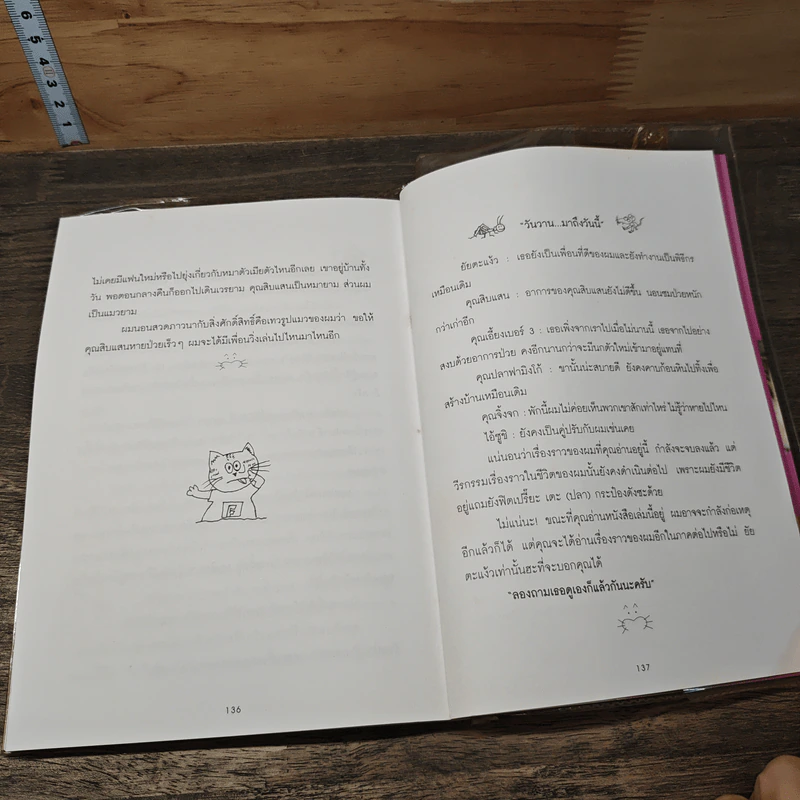 6 5 4 3 2 1
ไม่เคยมีแฟนใหม่หรือไปยุ่งเกี่ยวกับหมาตัวเมียตัวไหนอีกเลย เขาอยู่บ้านทั้ง
วัน พอตอนกลางคืนก็ออกไปเดินเวรยาม คุณสิบแสนเป็นหมายาม ส่วนผม
เป็นแมวยาม
ผมนอนสวดภาวนากับสิ่งศักดิ์สิทธิ์คือเทวรูปแมวของผมว่า ขอให้
คุณสิบแสนหายป่วยเร็วๆ ผมจะได้มีเพื่อนวิ่งเล่นไปไหนมาไหนอีก
136
"วันวาน...มาถึงวันนี้"
ยัยตะแง้ว : เธอยังเป็นเพื่อนที่ดีของผมและยังทำงานเป็นพิธีกร
เหมือนเดิม
คุณสิบแสน : อาการของคุณสิบแสนยังไม่ดีขึ้น นอนซมป่วยหนัก
กว่าเก่าอีก
คุณเอี้ยงเบอร์ 3 : เธอเพิ่งจากเราไปเมื่อไม่นานนี้ เธอจากไปอย่าง
สงบด้วยอาการป่วย คงอีกนานกว่าจะมีนกตัวใหม่เข้ามาอยู่แทนที่
คุณปลาฟามิงโก้ : ขานั้นน่ะสบายดี ยังคงคาบก้อนหินไปทิ้งเพื่อ
สร้างบ้านเหมือนเดิม
คุณจิ้งจก : พักนี้ผมไม่ค่อยเห็นพวกเขาสักเท่าไหร่ ไม่รู้ว่าหายไปไหน
ไอ้ซูชิ : ยังคงเป็นคู่ปรับกับผมเช่นเคย
แน่นอนว่าเรื่องราวของผมที่คุณอ่านอยู่นี้ กำลังจะจบลงแล้ว แต่
วีรกรรมเรื่องราวในชีวิตของผมนั้นยังคงดำเนินต่อไป เพราะผมยังมีชีวิต
อยู่แถมยังฟิตเปรี๊ยะ เตะ (ปลา) กระป๋องดังซะด้วย
ไม่แน่นะ! ขณะที่คุณอ่านหนังสือเล่มนี้อยู่ ผมอาจจะกำลังก่อเหตุ
อีกแล้วก็ได้ แต่คุณจะได้อ่านเรื่องราวของผมอีกในภาคต่อไปหรือไม่ อัย
ตะแง้วเท่านั้นฮะที่จะบอกคุณได้
"ลองถามเธอดูเองก็แล้วกันนะครับ"
137